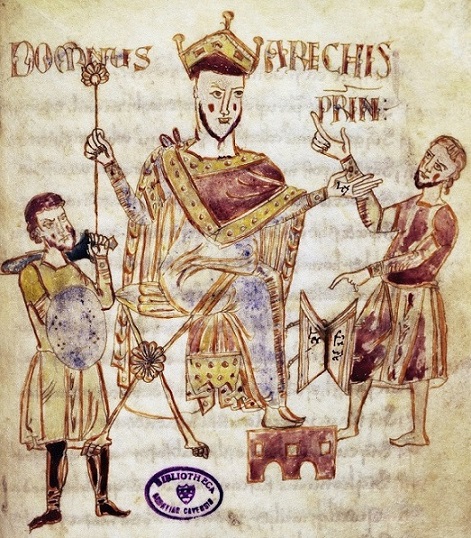 DOMNUS ARECHIS
PRIN:
BIBLIOTHECA
CAVENSIS